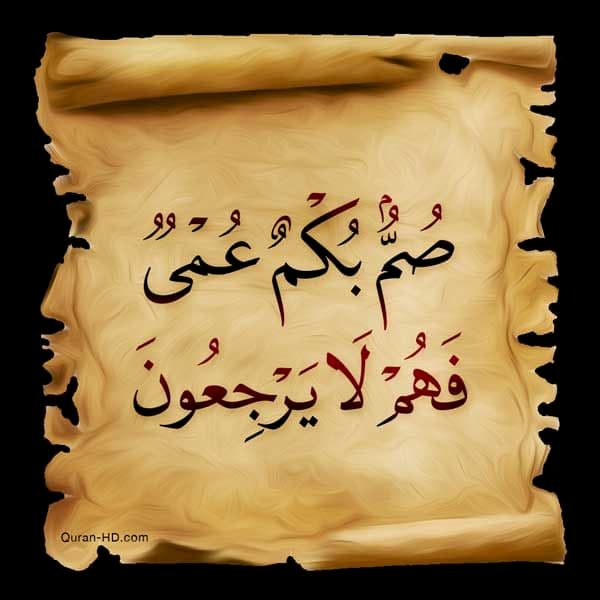 صُمُّۢ بُكْمٌ عُمْىٌ
فَهُمْ لَا يَرْجِعُونَ
Quran-HD.com